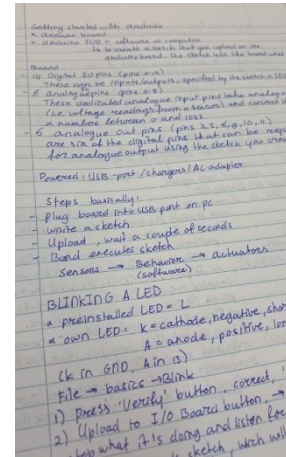 Getting started with arduino
* arduino board
* arduino IDE = software on computer
to create a sketch that you upload on the
arduino board. the sketch tells the board what
Board
- 14 Digital IO pins (pins 0-13)
These can be inputs/outputs, specified by the sketch in IDE
- 6 analogue pins (pins 0-5)
These dedicated analogue input pins take analog
(i.e. voltage readings from a sensor) and convert
a number between 0 and 1023.
- 6 analogue out pins (pins 3, 5, 6, 9, 10, 11)
are six of the digital pins that can be
for analogue output using the sketch you
Powered: USB-port / chargers / AC adapter.
Steps basically:
- plug board into USB port on pc
- write a sketch
- Upload, wait a couple of seconds
- Board executes sketch.
Sensors → Behavior → actuators
(software)
BLINKING A LED
* preinstalled LED = L
* own LED: K = cathode, negative,
A = anode, positive,
(K in GND, A in 13)
File → basics → Blink
1) press 'Verify' button, correct,
2) Upload to I/O Board button, →
what it's doing and listen for
sketch, wich will